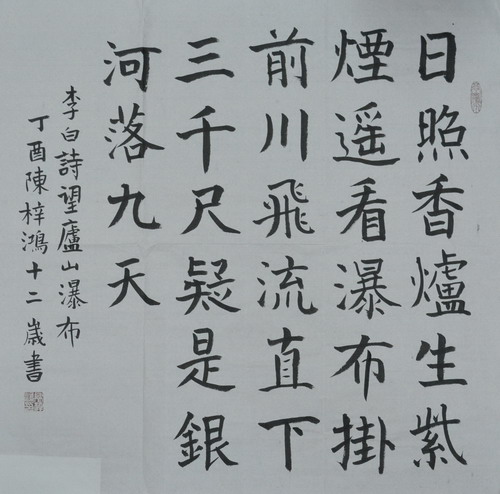 日照香爐生紫
煙遥看瀑布掛
前川飛流直下
三千尺疑是銀
河落九天
李白詩望廬山瀑布
丁酉陳梓鴻十二歲書